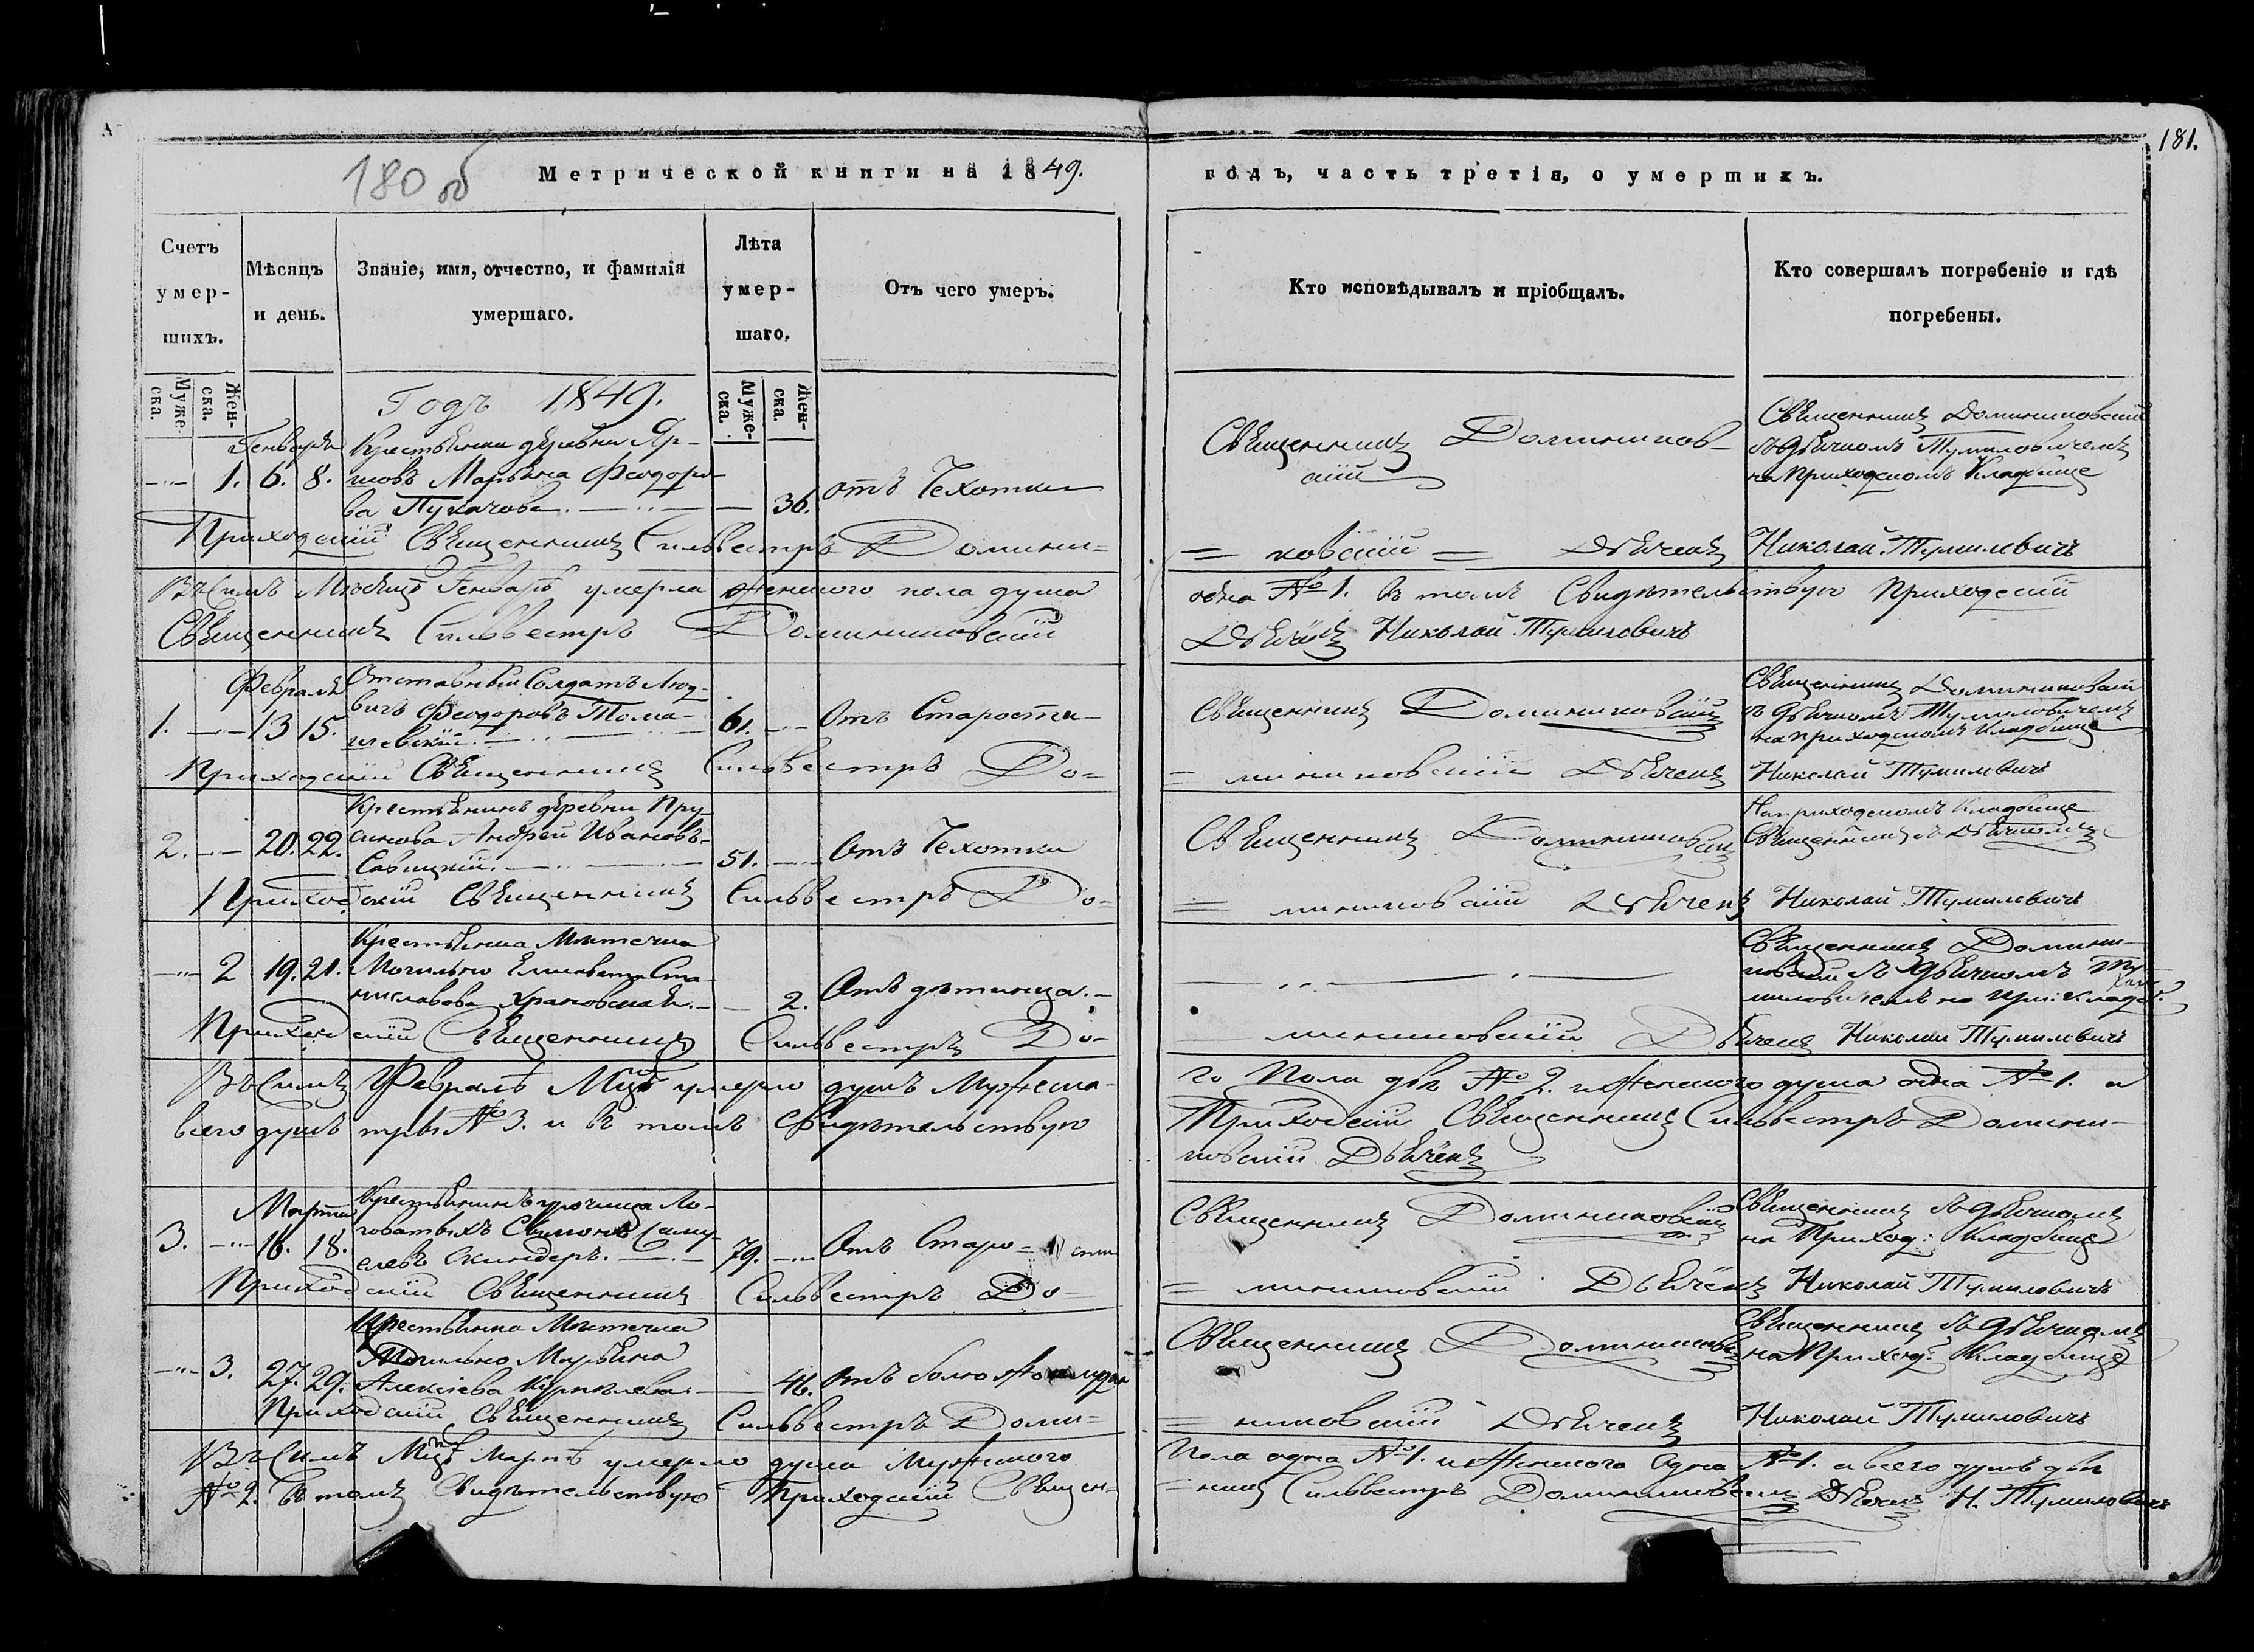 181.
180 об
Метрической книги на 1849.
годъ, часть третія, о умершихъ.
Счетъ умер-шихъ.
Мѣсяцъ и день.
Званіе, имя, отчество, и фамилія умершаго.
Лѣта умер-шаго.
Отъ чего умеръ.
Кто исповѣдывалъ и пріобщалъ.
Кто совершалъ погребеніе и гдѣ погребены.
Муже-ска.
Жен-ска.
Муже-ска.
Жен-ска.
Годъ 1849.
Генваря
Крестьянка деревни
1. 6. 8.
Марьяна Федоро-
ва Пукачова
36.
отъ Чехотки
Священникъ Домиников-
скій
Священникъ Доминиковскій
съ дьячкомъ Тумиловичемъ
на приходскомъ Кладбище
Приходскій Священникъ Сильвестръ Домини-
= ковскій = Дьячекъ Николай Тумиловичъ
Въ Семъ Мѣсяцѣ Генварѣ умерла женского пола душа
одна № 1. въ томъ Свидѣтельствую Приходскій
Священникъ Сильвестръ Доминиковскій
Дьячекъ Николай Тумиловичъ
Февраля
Отставный Солдатъ Люд-
вигъ Феодоровъ Тома-
шевскій
1. 13 15.
61.
Отъ Старости
Священникъ Доминиковскій
Священникъ Доминиковскій
съ дьячкомъ Тумиловичемъ
на приходскомъ Кладбище
Приходскій Священникъ Сильвестръ До=
= миниковскій Дьячекъ Николай Тумиловичъ
Крестьянинъ деревни Пру-
синова Андрей Ивановъ
Савицкій.
2. 20. 22.
51.
Отъ Чехотки
Священникъ Доминиковскій
На приходскомъ Кладбище
Священникъ съ Дьячкомъ
Приходскій Священникъ Сильвестръ До-
= миниковскій Дьячекъ Николай Тумиловичъ
Крестьянка Мѣстечка
Могильно Елисавета Ста-
ниславова Храновская
2 19. 21.
2.
Отъ дѣтинца.
Священникъ Домини-
ковскій съ Дьячкомъ Ту-
миловичемъ на при: Кладб.
Приходскій Священникъ Сильвестръ До-
миниковскій Дьячекъ Николай Тумиловичъ
Въ Семъ Февралѣ Мцѣ умерло душъ Мужеска-
го Пола двѣ № 2. и Женского душа одна № 1. а
всего душъ три № 3. и въ томъ Свидѣтельствую
Приходскій Священникъ Сильвестръ Домини-
ковскій Дьячекъ
Марта
Крестьянинъ урочища Ло-
говатыхъ Симонъ Саму-
елевъ Скиндеръ.
3. 16. 18.
79.
Отъ Старо= сти
Священникъ Доминиковскій
Священникъ съ дьячкомъ
на Приход: Кладбище
Приходскій Священникъ Сильвестръ До=
= миниковскій Дьячекъ Николай Тумиловичъ
Крестьянка Мѣстечка
Могильно Марьяна
Алексіева
3. 27. 29.
46.
Отъ боли
Священникъ Доминиковскій
Священникъ съ дьячкомъ
на Приход: Кладбище
Приходскій Священникъ Сильвестръ Доми=
= никовскій Дьячекъ Николай Тумиловичъ
Въ Семъ Мцѣ Мартѣ умерло душа Мужского
Пола одна № 1. и Женского Одна № 1. а всего душъ двѣ
№ 2. въ томъ Свидѣтельствую Приходскій Священ-
= никъ Сильвестръ Доминиковскій Дьячекъ Н. Тумиловичъ